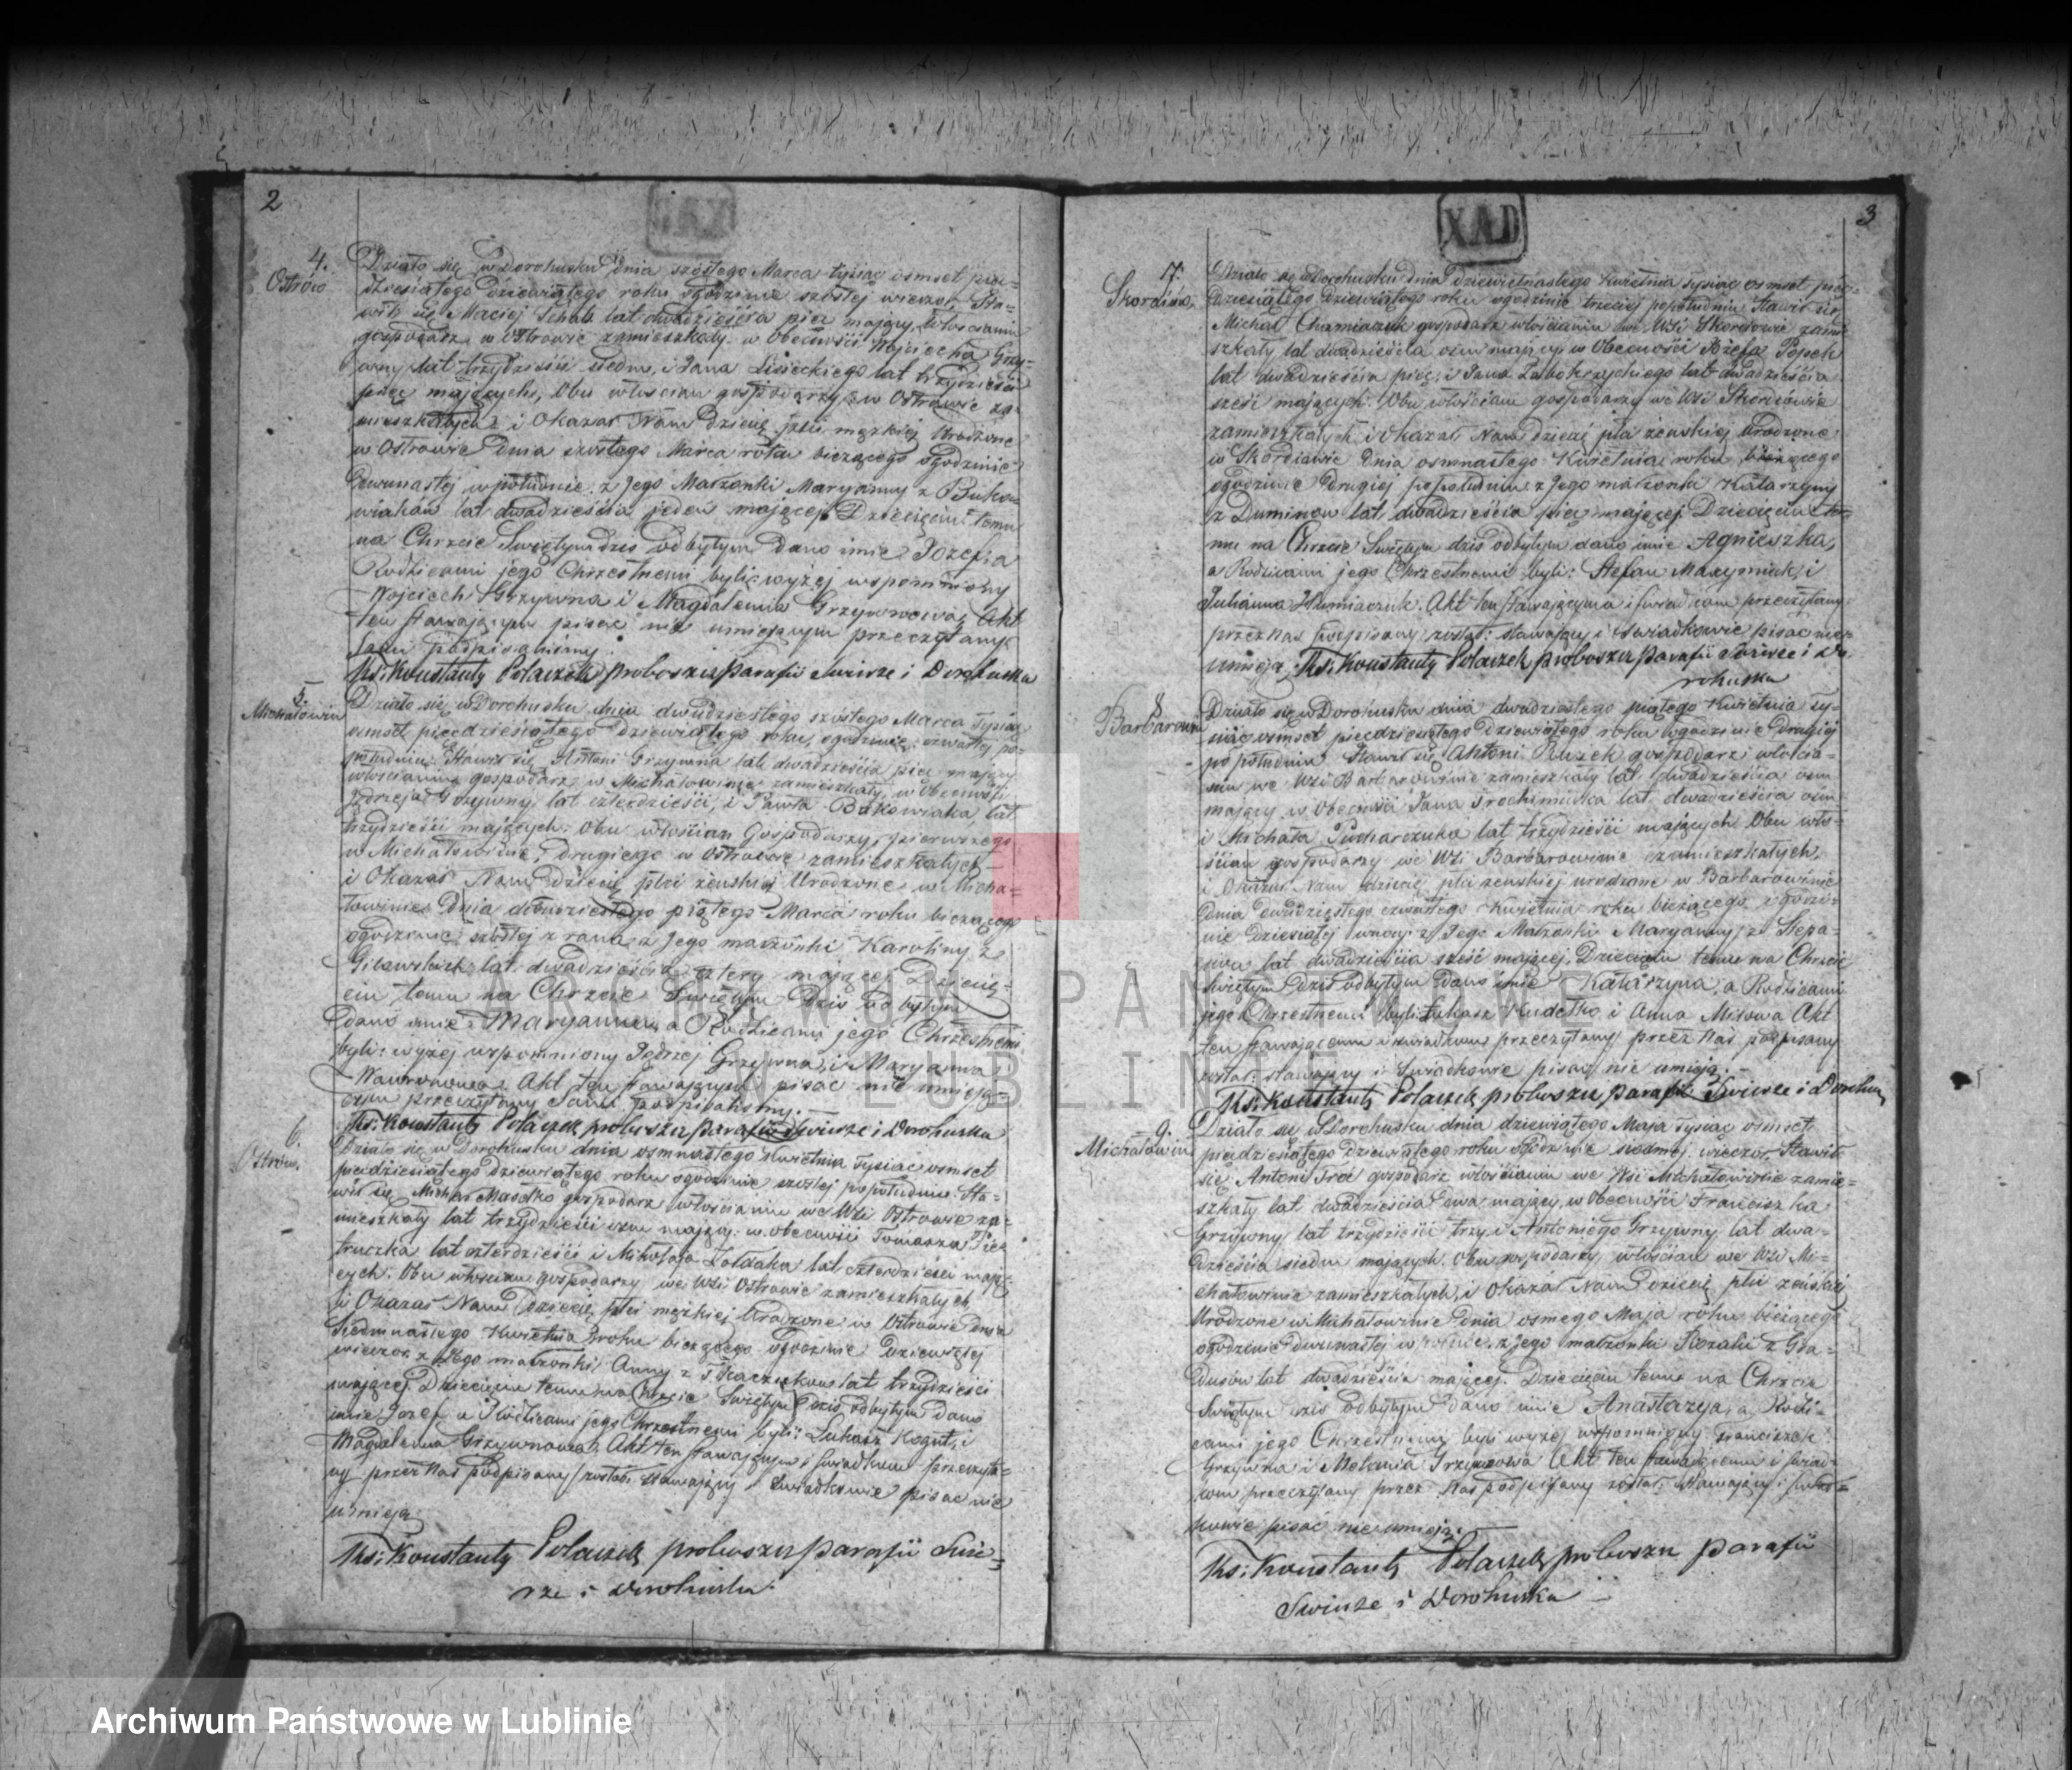 2
4.
Ostrów
Działo się w Dorohusku dnia szóstego Marca tysiąc ośmset pięć=
dziesiątego dziewiątego roku ogodzinie szóstej wieczor, Sta=
wił się Maciej lat dwadzieścia pięć mający, włościanin
gospodarz w Ostrowie zamieszkały w obecności Wojciecha Grzy=
wny lat trzydzieści siedm, i Jana Lisieckiego lat trzydzieści
pięć mających, Obu włościan gospodarzy w Ostrowie za=
mieszkałych i Okazał Nam dziecię płci męzkiej Urodzone
w Ostrowie Dnia szóstego Marca roku bieżącego ogodzinie
Dwunastej wpołudnie z Jego Małżonki Maryanny z Buko=
wiaków lat dwadzieścia jeden mającej Dziecięciu temu
na Chrzcie Świętym dziś odbytym dano imie Józef, a
Rodzicami jego Chrzestnemi byli: wyżej wspomniony
Wojciech Grzywna i Magdalena Grzywnowa, Akt
ten stawającym pisać nie umiejącym przeczytany
Sami podpisaliśmy.
Ks: Konstanty Polaczek proboszcz parafii Świerze i Dorohuska
5.
Michałowin
Działo się w Dorohusku dnia dwudziestego szóstego Marca Tysiąc
osmset pięćdziesiątego dziewiątego roku, ogodzinie czwartej po=
południu, Stawił się Antoni Grzywna lat dwadzieścia pięć mający
włościanin gospodarz w Michałowinie zamieszkały, w obecności
Jędrzeja Grzywny lat czterdzieści, i Pawła Bukowiaka, lat
trzydzieści mających. Obu włościan Gospodarzy, pierwszego
w Michałowinie, drugiego w Ostrowie zamieszkałych
i Okazał Nam dziecię płci żeńskiej Urodzone w Micha=
łowinie Dnia dwudziestego piątego Marca roku bieżącego
ogodzinie szóstej z rana z Jego małżonki Karoliny z
lat dwadzieścia cztery mającej Dziecię=
ciu temu na Chrzcie Świętym Dziś odbytym
dano imie Maryanna, a Rodzicami jego Chrzestnemi
byli: wyżej wspomniony Jędrzej Grzywna, i Maryanna
Akt ten stawającym pisać nie umieją=
cym przeczytany Sami podpisaliśmy.
Ks: Konstanty Polaczek proboszcz parafii Świerze i Dorohuska
6.
Ostrów.
Działo się w Dorohusku dnia osmnastego Kwietnia Tysiąc osmset
pięćdziesiątego dziewiątego roku ogodzinie szóstej popołudniu Sta=
wił się Michał gospodarz włościanin we Wsi Ostrowie za=
mieszkały lat trzydzieści mający w obecności Tomasza
lat czterdzieści i Mikołaja Żołdaka lat czterdzieści mają=
cych. Obu włościan gospodarzy we Wsi Ostrowie zamieszkałych
i Okazał Nam dziecię płci męzkiej Urodzone w Ostrowie Dnia
Siedmnastego Kwietnia roku bieżącego ogodzinie Dziewiątej
wieczor z Jego małżonki Anny z Tkaczuków lat trzydzieści
mającej Dziecięciu temu na Chrzcie Świętym Dziś odbytym dano
imie Józef a Rodzicami jego Chrzestnemi byli: Łukasz Kogut, i
Magdalena Grzywnowa, Akt ten stawającym i świadkom przeczyta=
ny przez Nas podpisany został. Stawający i Świadkowie pisać nie
umieją
Ks: Konstanty Polaczek proboszcz parafii Świe=
rze i Dorohuska
XAD
3
7.
Skordiów.
Działo się w Dorohusku dnia dziewiętnastego Kwietnia tysiąc osmset pięć=
dziesiątego dziewiątego roku ogodzinie trzeciej popołudniu Stawił się
Michał gospodarz włościanin we Wsi Skordiowie zamie
szkały lat dwadzieścia osm mający w Obecności Józefa Popek
lat dwadzieścia pięć, i Jana lat dwadzieścia
sześć mających. Obu włościan gospodarzy we Wsi Skordiowie
zamieszkałych i okazał Nam dziecię płci żeńskiej urodzone
w Skordiowie Dnia osmnastego Kwietnia roku bieżącego
ogodzinie Drugiej popołudniu z Jego małżonki Katarzyny
z Duminów lat dwadzieścia pięć mającej Dziecięciu te=
mu na Chrzcie Świętym dziś odbytym dano imie Agnieszka,
a Rodzicami jego Chrzestnemi byli: Stefan Maxymiuk, i
Julianna Akt ten stawającemu i świadkom przeczytany
przez nas podpisany został: stawający i świadkowie pisać nie
umieją. Ks: Konstanty Polaczek proboszcz parafii Świerze i Do
rohuska
8
Barbarowin
Działo się w Dorohusku dnia dwudziestego piątego Kwietnia ty=
siąc osmset pięćdziesiątego dziewiątego roku ogodzinie Drugiej
popołudniu Stawił się Antoni gospodarz włościa=
nin we Wsi Barbarowinie zamieszkały lat dwadzieścia osm
mający w Obecności Jana Trochimiuka lat dwadzieścia osm
i Michała lat trzydzieści mających Obu wło=
ścian gospodarzy we Wsi Barbarowinie zamieszkałych,
i Okazał Nam dziecię płci żeńskiej urodzone w Barbarowinie
Dnia dwudziestego czwartego Kwietnia roku bieżącego, ogodzi=
nie Dziesiątej wnocy z Jego Małżonki Maryanny z
lat dwadzieścia sześć mającej, Dziecięciu temu na Chrzcie
Świętym Dziś odbytym dano imie Katarzyna, a Rodzicami
jego Chrzestnemi byli: Łukasz Kudełko i Anna Misowa Akt
ten stawającemu i świadkom przeczytany przez Nas podpisany
został. stawający i Świadkowie pisać nie umieją.
Ks: Konstanty Polaczek proboszcz parafii Świerze i Dorohus
9.
Michałowin
Działo się w Dorohusku dnia dziewiątego Maja tysiąc osmset
pięćdziesiątego dziewiątego roku ogodzinie siódmej wieczor, Stawił
się Antoni gospodarz włościanin we Wsi Michałowinie zamie=
szkały lat dwadzieścia dwa mający, w Obecności Franciszka
Grzywny lat trzydzieści trzy, i Antoniego Grzywny lat dwa=
dzieścia siedm mających Obu gospodarzy włościan we Wsi Mi=
chałowinie zamieszkałych, i Okazał Nam Dziecię płci żeńskiej
Urodzone w Michałowinie Dnia osmego Maja roku bieżącego
ogodzinie dwunastej z Jego małżonki Rozalii z
lat dwadzieścia mającej. Dziecięciu temu na Chrzcie
Świętym dziś odbytym dano imie Anastazya, a Rodzi=
cami jego Chrzestnemi byli wyżej wspomniony Franciszek
Grzywna i Melania Grzywowa Akt ten stawającemu i świad=
kom przeczytany przez Nas podpisany został. Stawający i świad=
kowie pisać nie umieją.
Ks: Konstanty Polaczek proboszcz parafii
Świerze i Dorohuska
ARCHIWUM PAŃSTWOWE
W LUBLINIE
Archiwum Państwowe w Lublinie